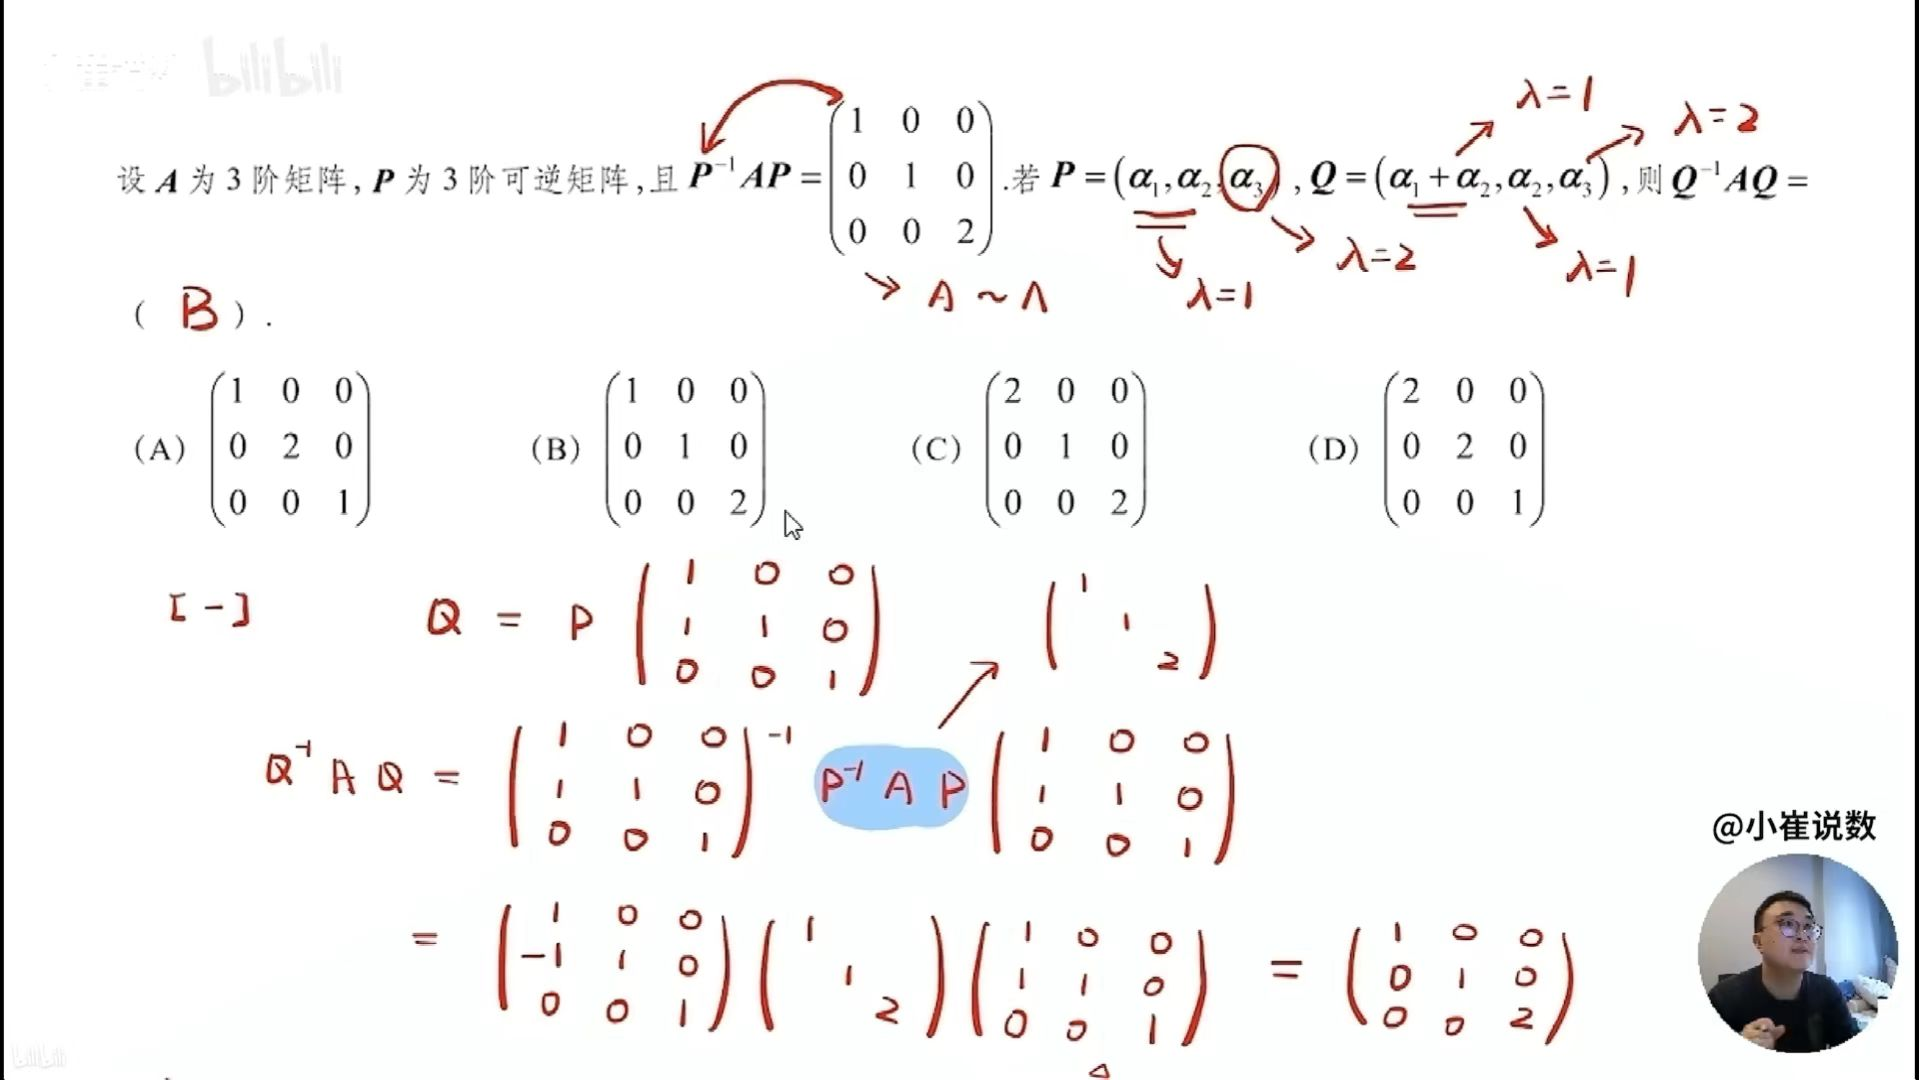 bilibili
λ=1
λ=2
设 A 为 3 阶矩阵, P 为 3 阶可逆矩阵, 且 P⁻¹AP = (1 0 0; 0 1 0; 0 0 2) . 若 P = (α₁, α₂, α₃), Q = (α₁ + α₂, α₂, α₃), 则 Q⁻¹AQ =
λ=2
λ=1
→ A ~ Λ
λ=1
( B ) .
(A) (1 0 0; 0 2 0; 0 0 1) (B) (1 0 0; 0 1 0; 0 0 2) (C) (2 0 0; 0 1 0; 0 0 2) (D) (2 0 0; 0 2 0; 0 0 1)
[-] Q = P (1 0 0; 1 1 0; 0 0 1) (1; 1; 2)
Q⁻¹AQ = (1 0 0; 1 1 0; 0 0 1)⁻¹ P⁻¹AP (1 0 0; 1 1 0; 0 0 1)
= (1 0 0; -1 1 0; 0 0 1) (1; 1; 2) (1 0 0; 1 1 0; 0 0 1) = (1 0 0; 0 1 0; 0 0 2)
@小崔说数
bilibili